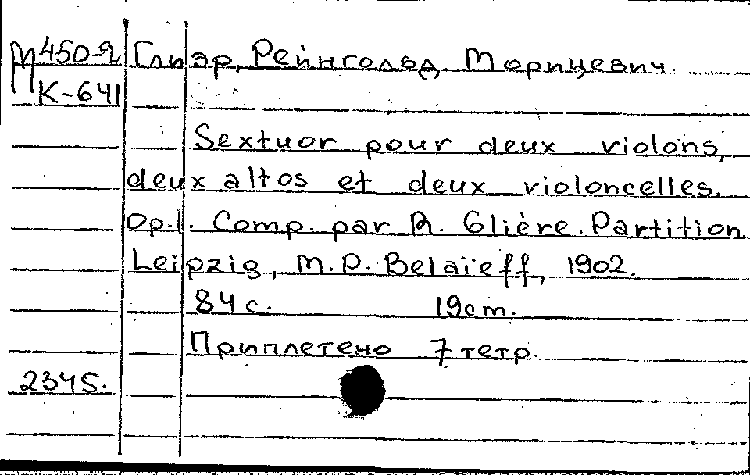 М450-Я Глиэр, Рейнгольд Морицевич.
К-641
Sextuor pour deux violons,
deux altos et deux violoncelles.
Op.1. Comp. par R. Glière. Partition
Leipzig, M.P. Belaïeff, 1902.
84 с. 19cm.
Приплетено 7 тетр.
2345.